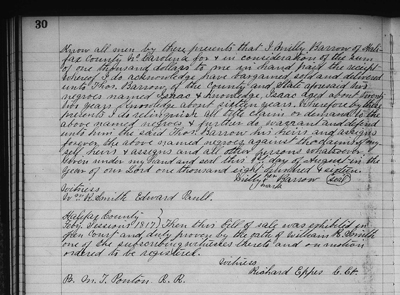 30
Know all men by these presents that I Milly Barrow of Hali-
fax County No. Carolina for & in consideration of the sum
of one thousand dollars to me in hand paid the receipt
whereof I do acknowledge have bargained sold and delivered
unto Thos. Barrow, of the County and State aforesaid two
negroes named Isaac & Isaac aged about twenty
two years about sixteen years. Wherefore by these
presents I do relinquish all title claim or demand to the
above named negroes, & further do warrant and defend
unto him the said Thos. Barrow his heirs and assigns
forever the above named negroes against the claims of my-
self heirs & assigns and all other persons whatsoever.
Given under my hand and seal this 1st day of August in the
year of our Lord one thousand eight hundred & sixteen.
Milly her Barrow (seal)
mark
Witness
Wm. R. Smith Edward Prull.
Halifax County }
Feby. Sessions 1817 } Then this bill of sale was exhibited in
open Court and duly proven by the oath of William R. Smith
one of the subscribing witnesses thereto and on motion
ordered to be registered.
Witness
Richard Eppes C. Ct.
B. M. T. Ponton. R. R.